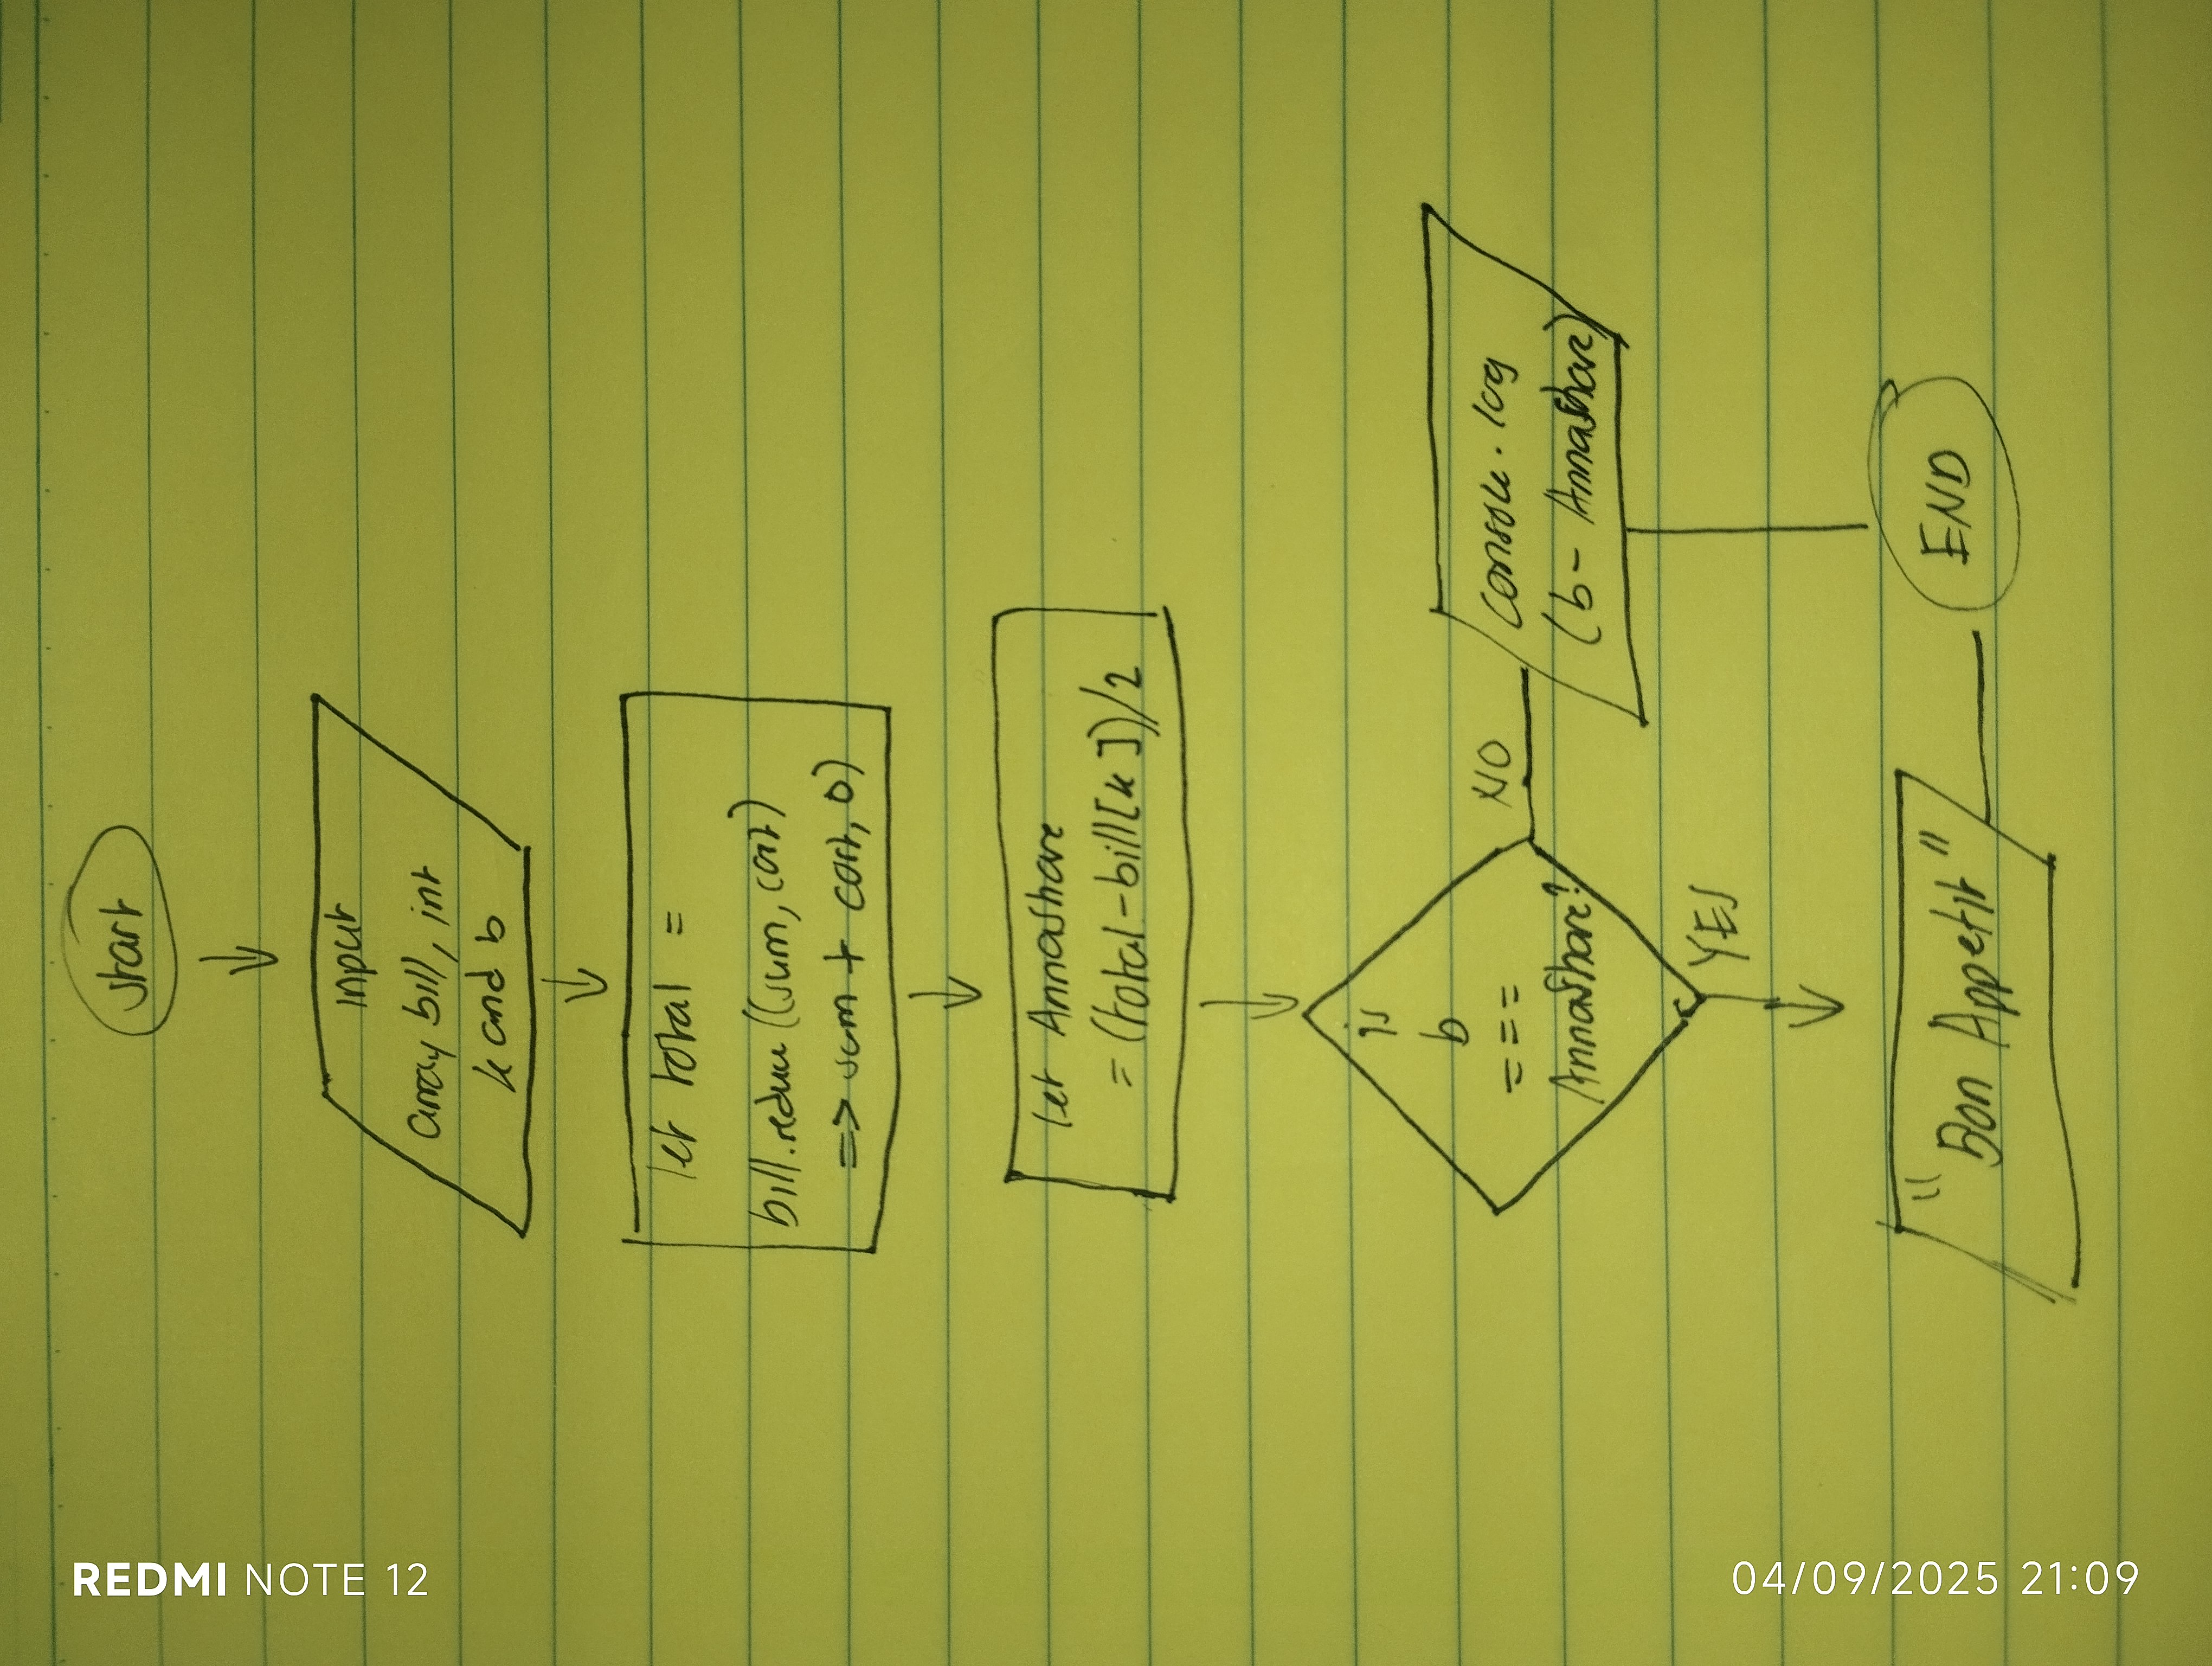 start
input
array bill, int
k and b
let total =
bill.reduce((sum, cost)
=> sum + cost, 0)
let Annashare
= (total - bill[k])/2
is
b
===
AnnaShare?
NO
console.log
(b - Annashare)
YES
"Bon Appetit"
END
REDMI NOTE 12
04/09/2025 21:09